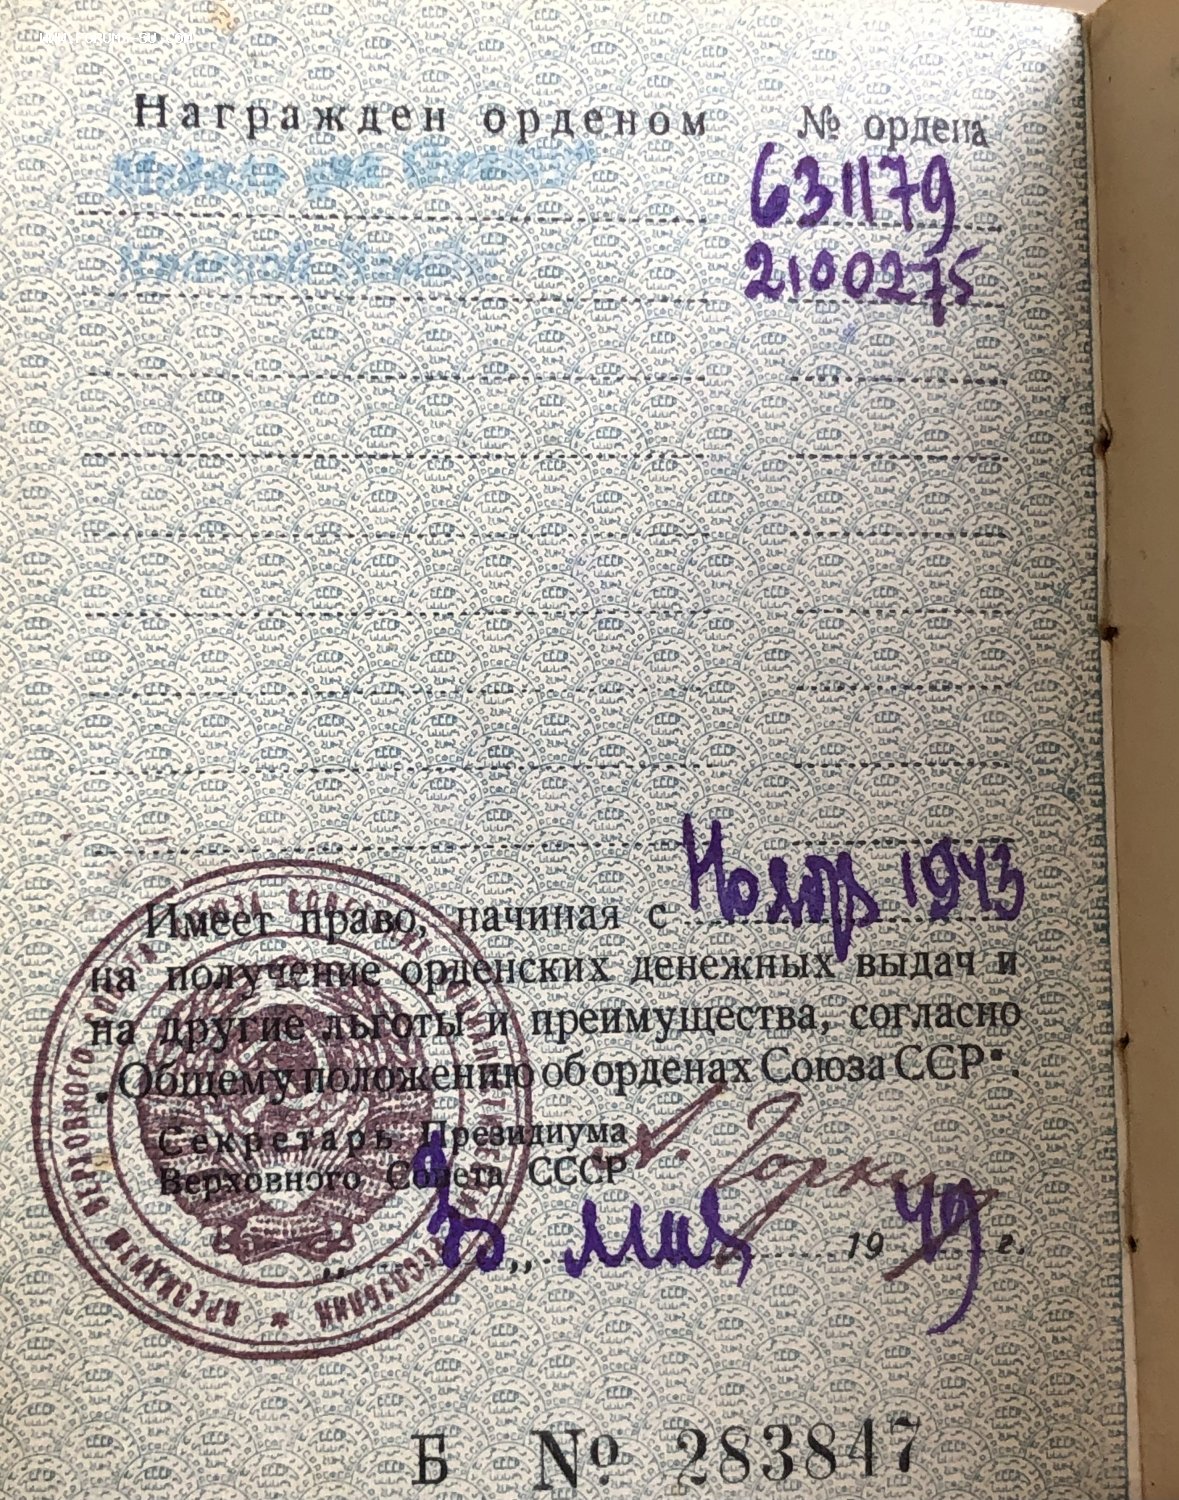 Награжден орденом № ордена
631179
2100275
Имеет право, начиная с Ноябр 1943
на получение орденских денежных выдач и
на другие льготы и преимущества, согласно
„Общему положению об орденах Союза ССР“.
Секретарь Президиума
Верховного Совета СССР А. Горкин
мая 1949 г.
Б № 283847